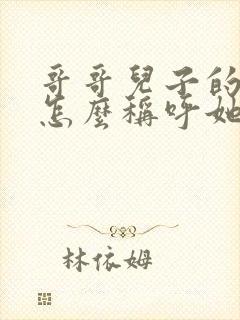 哥哥兒子的
怎麼稱呼她
林依姆